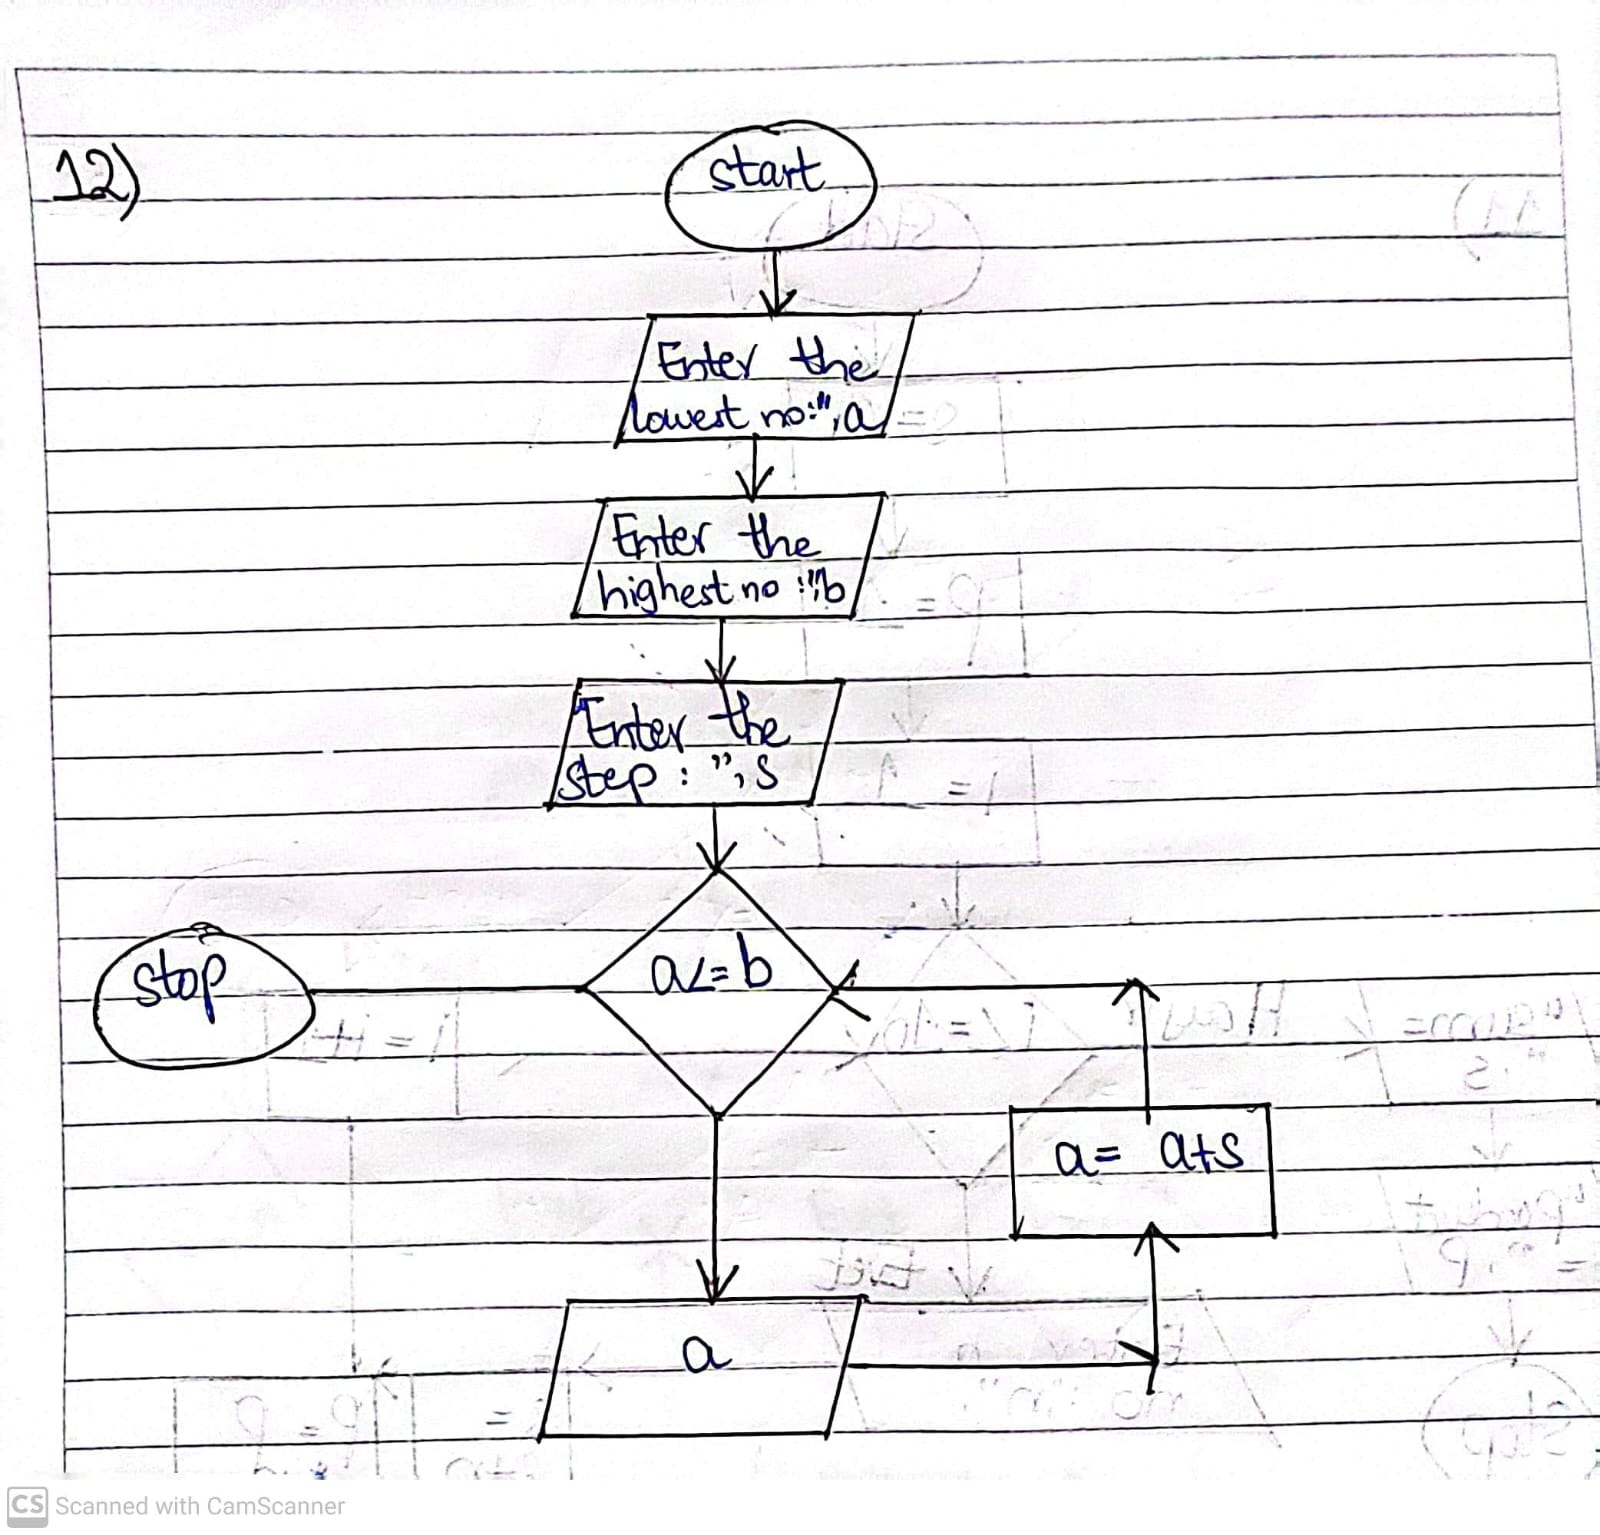 12)
start
Enter the
lowest no:", a
Enter the
highest no :", b
Enter the
step : ", s
a<=b
stop
a= a+s
a
CS Scanned with CamScanner